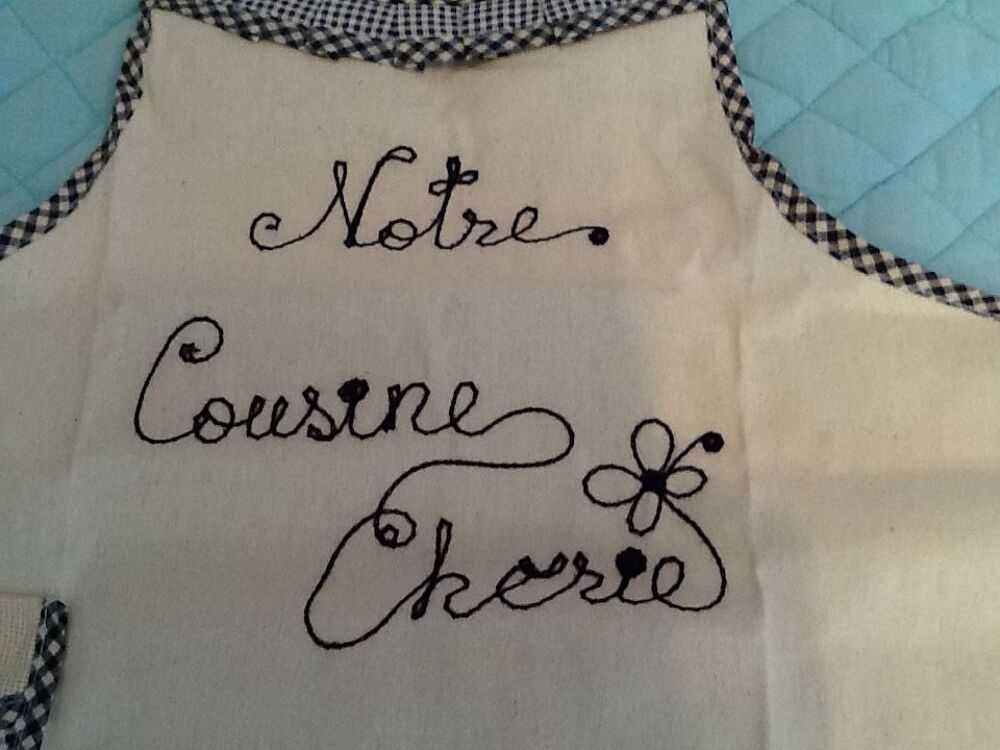 Notre
Cousine
Chérie